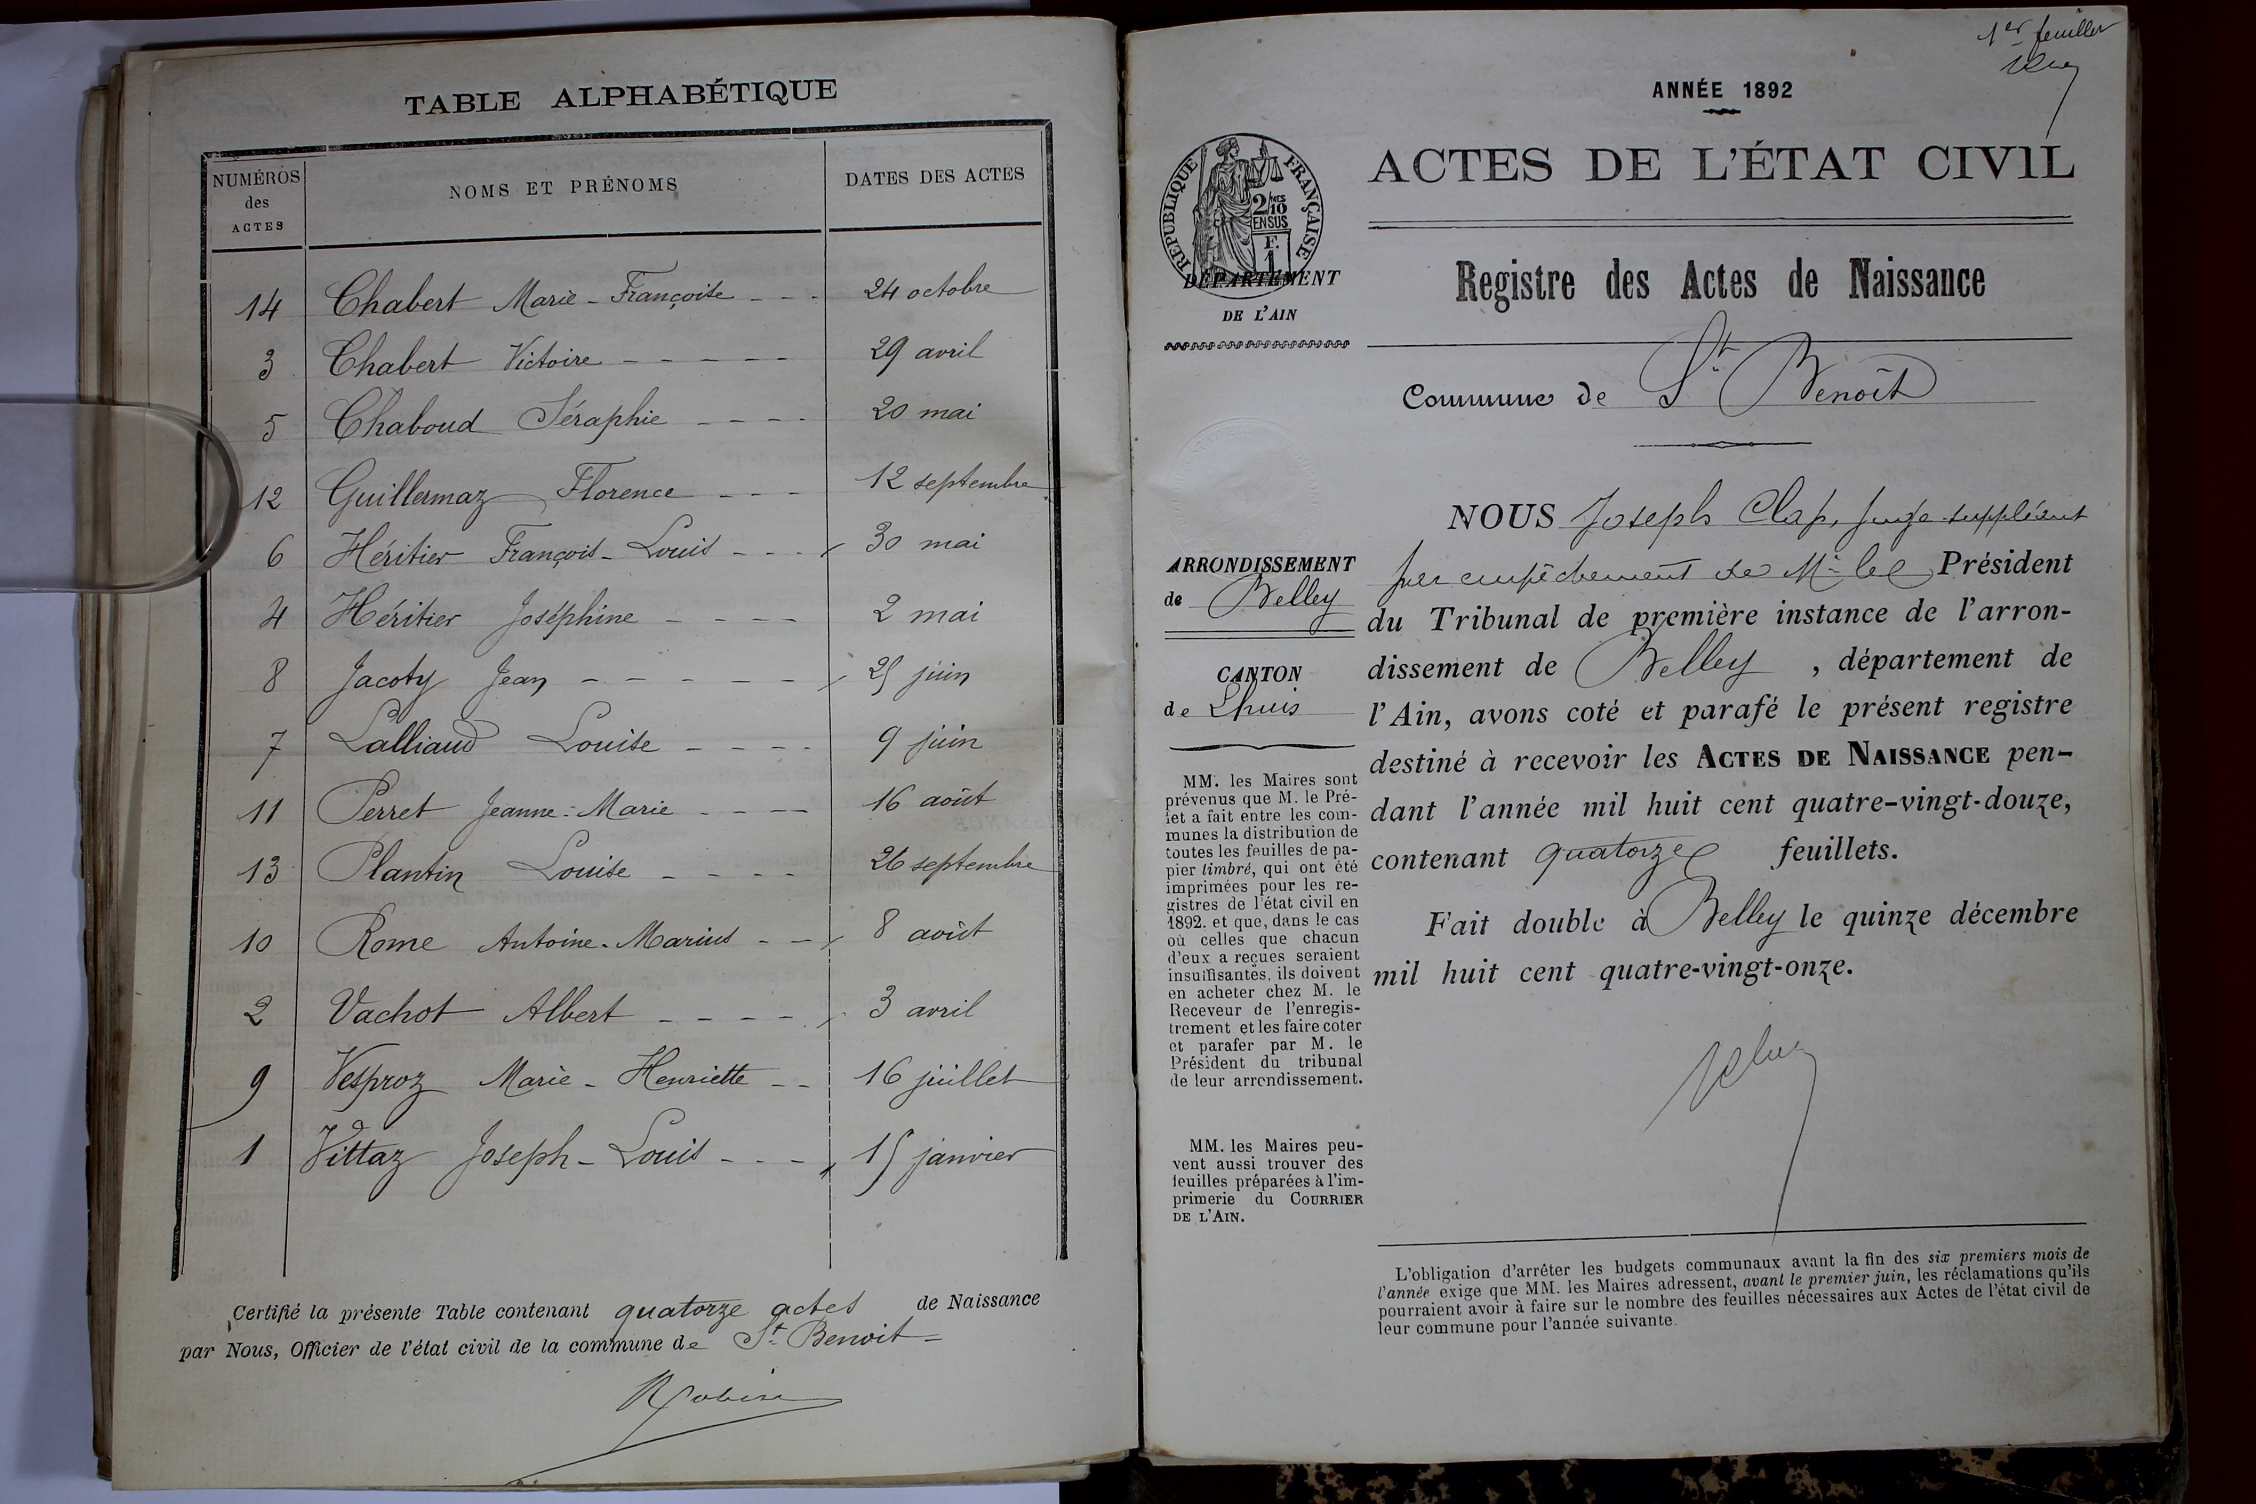 TABLE ALPHABÉTIQUE
NUMÉROS des ACTES
NOMS ET PRÉNOMS
DATES DES ACTES
14 Chabert Marie-Françoise 24 octobre
3 Chabert Victoire 29 avril
5 Chaboud Séraphie 20 mai
12 Guillermaz Florence 12 septembre
6 Héritier François-Louis 30 mai
4 Héritier Joséphine 2 mai
8 Jacoty Jean 25 juin
7 Lalliaud Louise 9 juin
11 Perret Jeanne-Marie 16 août
13 Plantin Louise 26 septembre
10 Rome Antoine-Marius 8 août
2 Vachot Albert 3 avril
9 Vesproz Marie-Henriette 16 juillet
1 Vittaz Joseph-Louis 15 janvier
Certifié la présente Table contenant quatorze actes de Naissance
par Nous, Officier de l'état civil de la commune de St Benoit
1er feuillet
ANNÉE 1892
RÉPUBLIQUE FRANÇAISE
2/10MES
EN SUS
F.
1
ACTES DE L'ÉTAT CIVIL
Registre des Actes de Naissance
DÉPARTEMENT
DE L'AIN
Commune de St Benoît
ARRONDISSEMENT
de Belley
CANTON
de Lhuis
MM. les Maires sont
prévenus que M. le Pré-
fet a fait entre les com-
munes la distribution de
toutes les feuilles de pa-
pier timbré, qui ont été
imprimées pour les re-
gistres de l'état civil en
1892. et que, dans le cas
où celles que chacun
d'eux a reçues seraient
insuffisantes, ils doivent
en acheter chez M. le
Receveur de l'enregis-
trement et les faire coter
et parafer par M. le
Président du tribunal
de leur arrondissement.
MM. les Maires peu-
vent aussi trouver des
feuilles préparées à l'im-
primerie du COURRIER
DE L'AIN.
NOUS Joseph Clap, juge suppléant
par empêchement de Mr le Président
du Tribunal de première instance de l'arron-
dissement de Belley, département de
l'Ain, avons coté et parafé le présent registre
destiné à recevoir les ACTES DE NAISSANCE pen-
dant l'année mil huit cent quatre-vingt-douze,
contenant quatorze feuillets.
Fait double à Belley le quinze décembre
mil huit cent quatre-vingt-onze.
L'obligation d'arrêter les budgets communaux avant la fin des six premiers mois de
l'année exige que MM. les Maires adressent, avant le premier juin, les réclamations qu'ils
pourraient avoir à faire sur le nombre des feuilles nécessaires aux Actes de l'état civil de
leur commune pour l'année suivante.